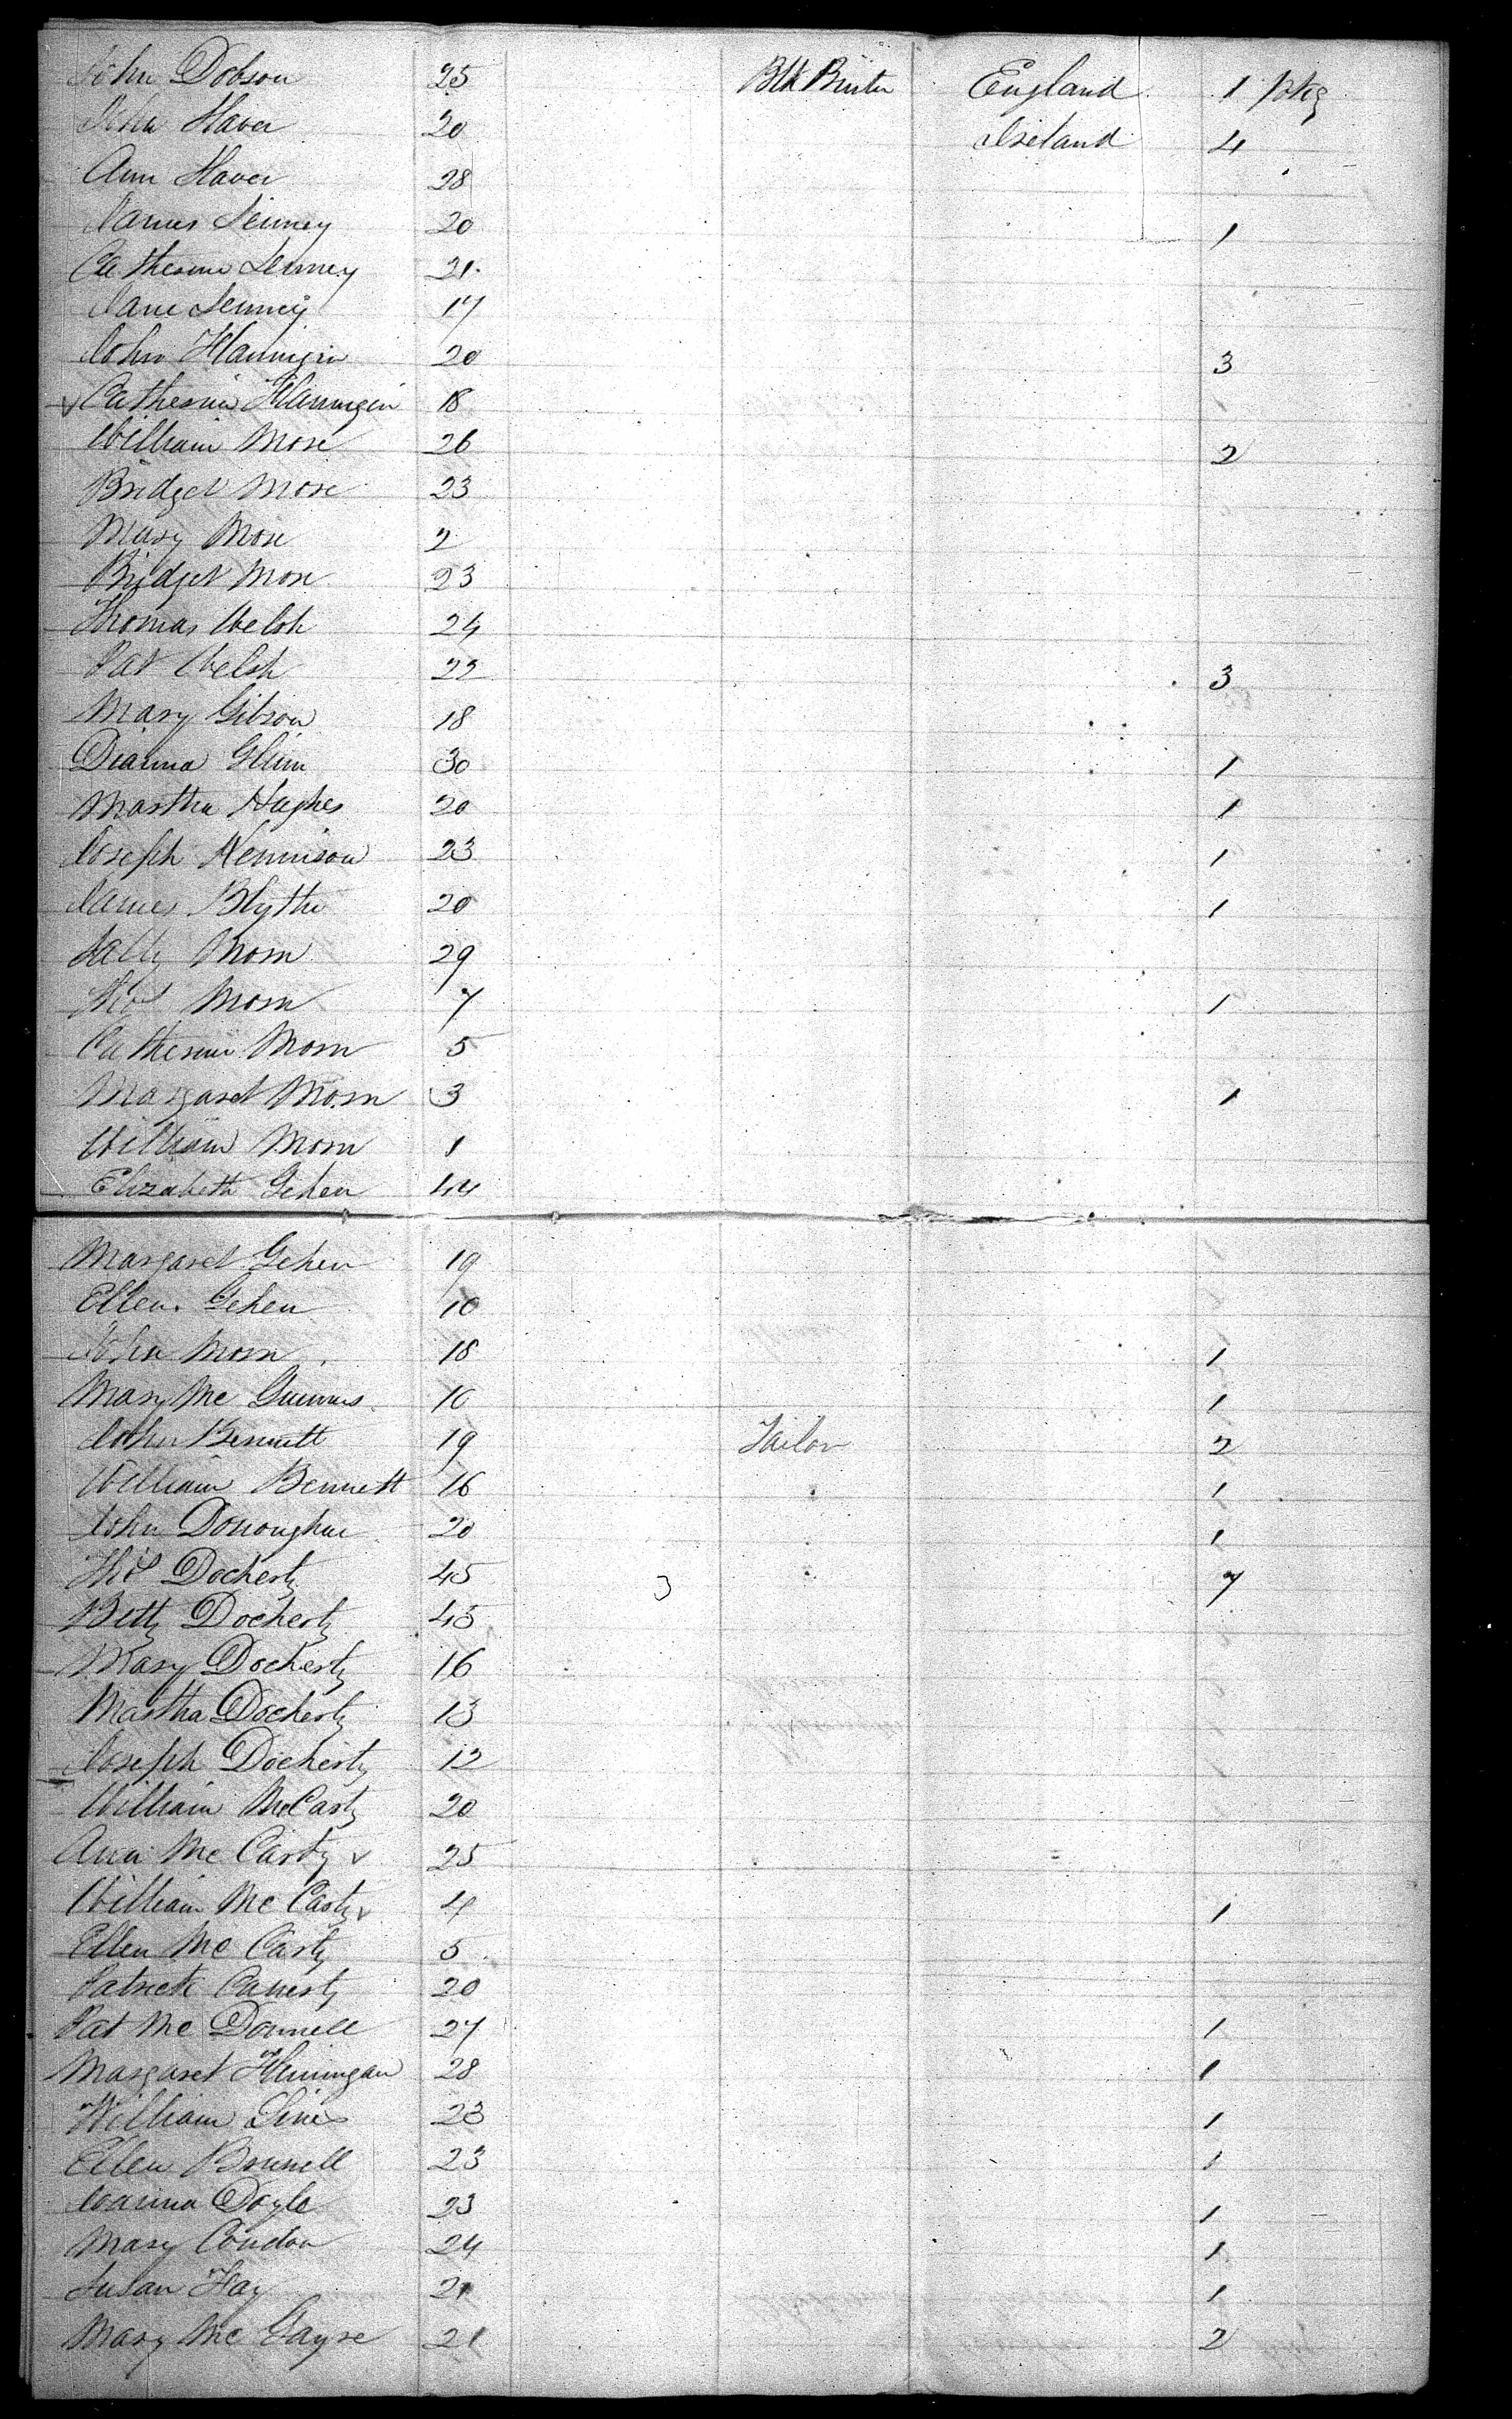 John Dobson 25 Blk Printer England 1 pkg
John Haver 20 Ireland 4
Ann Haver 28
James Fenney 20 1
Catherine Fenney 21
Jane Fenney 17
John Flannigin 20 3
Catherine Flannigin 18
William More 26 2
Bridget More 23
Mary More 2
Bridget More 23
Thomas Welsh 24
Pat Welsh 22 3
Mary Gibson 18
Dianna Glinn 30 1
Martha Hughes 20 1
Joseph Kennison 23 1
James Blythe 20 1
Sally Morn 29
Thos Morn 7 1
Catherine Morn 5
Margaret Morn 3 1
William Morn 1
Elizabeth Gehen 44
Margaret Gehen 19
Ellen Gehen 10
John Morn 18 1
Mary Mc 10 1
John Bennett 19 Tailor 2
William Bennett 16 1
John Donoughue 20 1
Thos Docherty 45 3 7
Betty Docherty 45
Mary Docherty 16
Martha Docherty 13
Joseph Docherty 12
William McCarty 20
Ann Mc Carty 25
William Mc Carty 4 1
Ellen Mc Carty 5
Patrick 20
Pat Mc Donnell 27 1
Margaret Flannigan 28 1
William Lines 23 1
Ellen 23 1
Joanna Doyle 23 1
Mary Condon 24 1
Susan Hay 21 1
Mary Mc 21 2